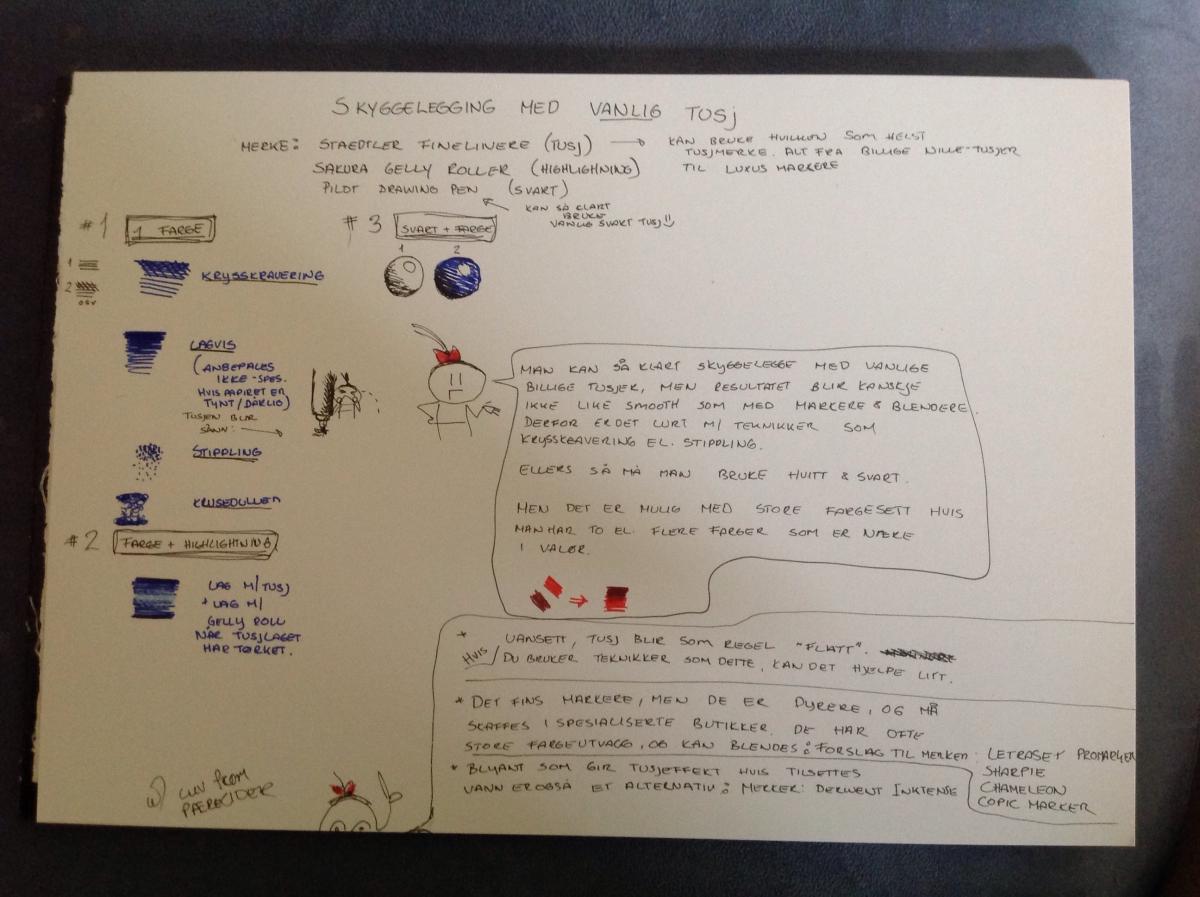 SKYGGELEGGING MED VANLIG TUSJ
MERKE: STAEDTLER FINELINERE (TUSJ) → KAN BRUKE HVILKEN SOM HELST
TUSJMERKE. ALT FRA BILLIGE NILLE-TUSJER
TIL LUXUS MARKERE
SAKURA GELLY ROLLER (HIGHLIGHNING)
PILOT DRAWING PEN (SVART)
KAN SÅ KLART
BRUKE
VANLIG SVART TUSJ
#1 1 FARGE
1
2
OSV
KRYSSKRAVERING
LAGVIS
(ANBEPALES
IKKE - SPES.
HVIS PAPIRET ER
TYNT/DÅRLIG)
TUSJEN BLIR
SÅNN: →
STIPPLING
KRUSEDULLER
#2 FARGE + HIGHLIGHTNING
LAG M/TUSJ
+ LAG M/
GELLY ROLL
NÅR TUSJLAGET
HAR TØRKET.
#3 SVART + FARGE
1 2
MAN KAN SÅ KLART SKYGGELEGGE MED VANLIGE
BILLIGE TUSJER, MEN RESULTATET BLIR KANSKJE
IKKE LIKE SMOOTH SOM MED MARKERE & BLENDERE.
DERFOR ER DET LURT M/ TEKNIKKER SOM
KRYSSKRAVERING EL. STIPPLING.
ELLERS SÅ MÅ MAN BRUKE HVITT & SVART.
MEN DET ER MULIG MED STORE FARGESETT HVIS
MAN HAR TO EL. FLERE FARGER SOM ER NÆRE
I VALØR.
* UANSETT, TUSJ BLIR SOM REGEL "FLATT".
HVIS / DU BRUKER TEKNIKKER SOM DETTE, KAN DET HJELPE LITT.
* DET FINS MARKERE, MEN DE ER DYRERE, OG MÅ
SKAFFES I SPESIALISERTE BUTIKKER. DE HAR OFTE
STORE FARGEUTVALG, OG KAN BLENDES: FORSLAG TIL MERKER: LETRASET PROMARKER
SHARPIE
CHAMELEON
COPIC MARKER
* BLYANT SOM GIR TUSJEFFEKT HVIS TILSETTES
VANN ER OGSÅ ET ALTERNATIV: MERKER: DERWENT INKTENSE
LUV FROM
PÆRECIDER